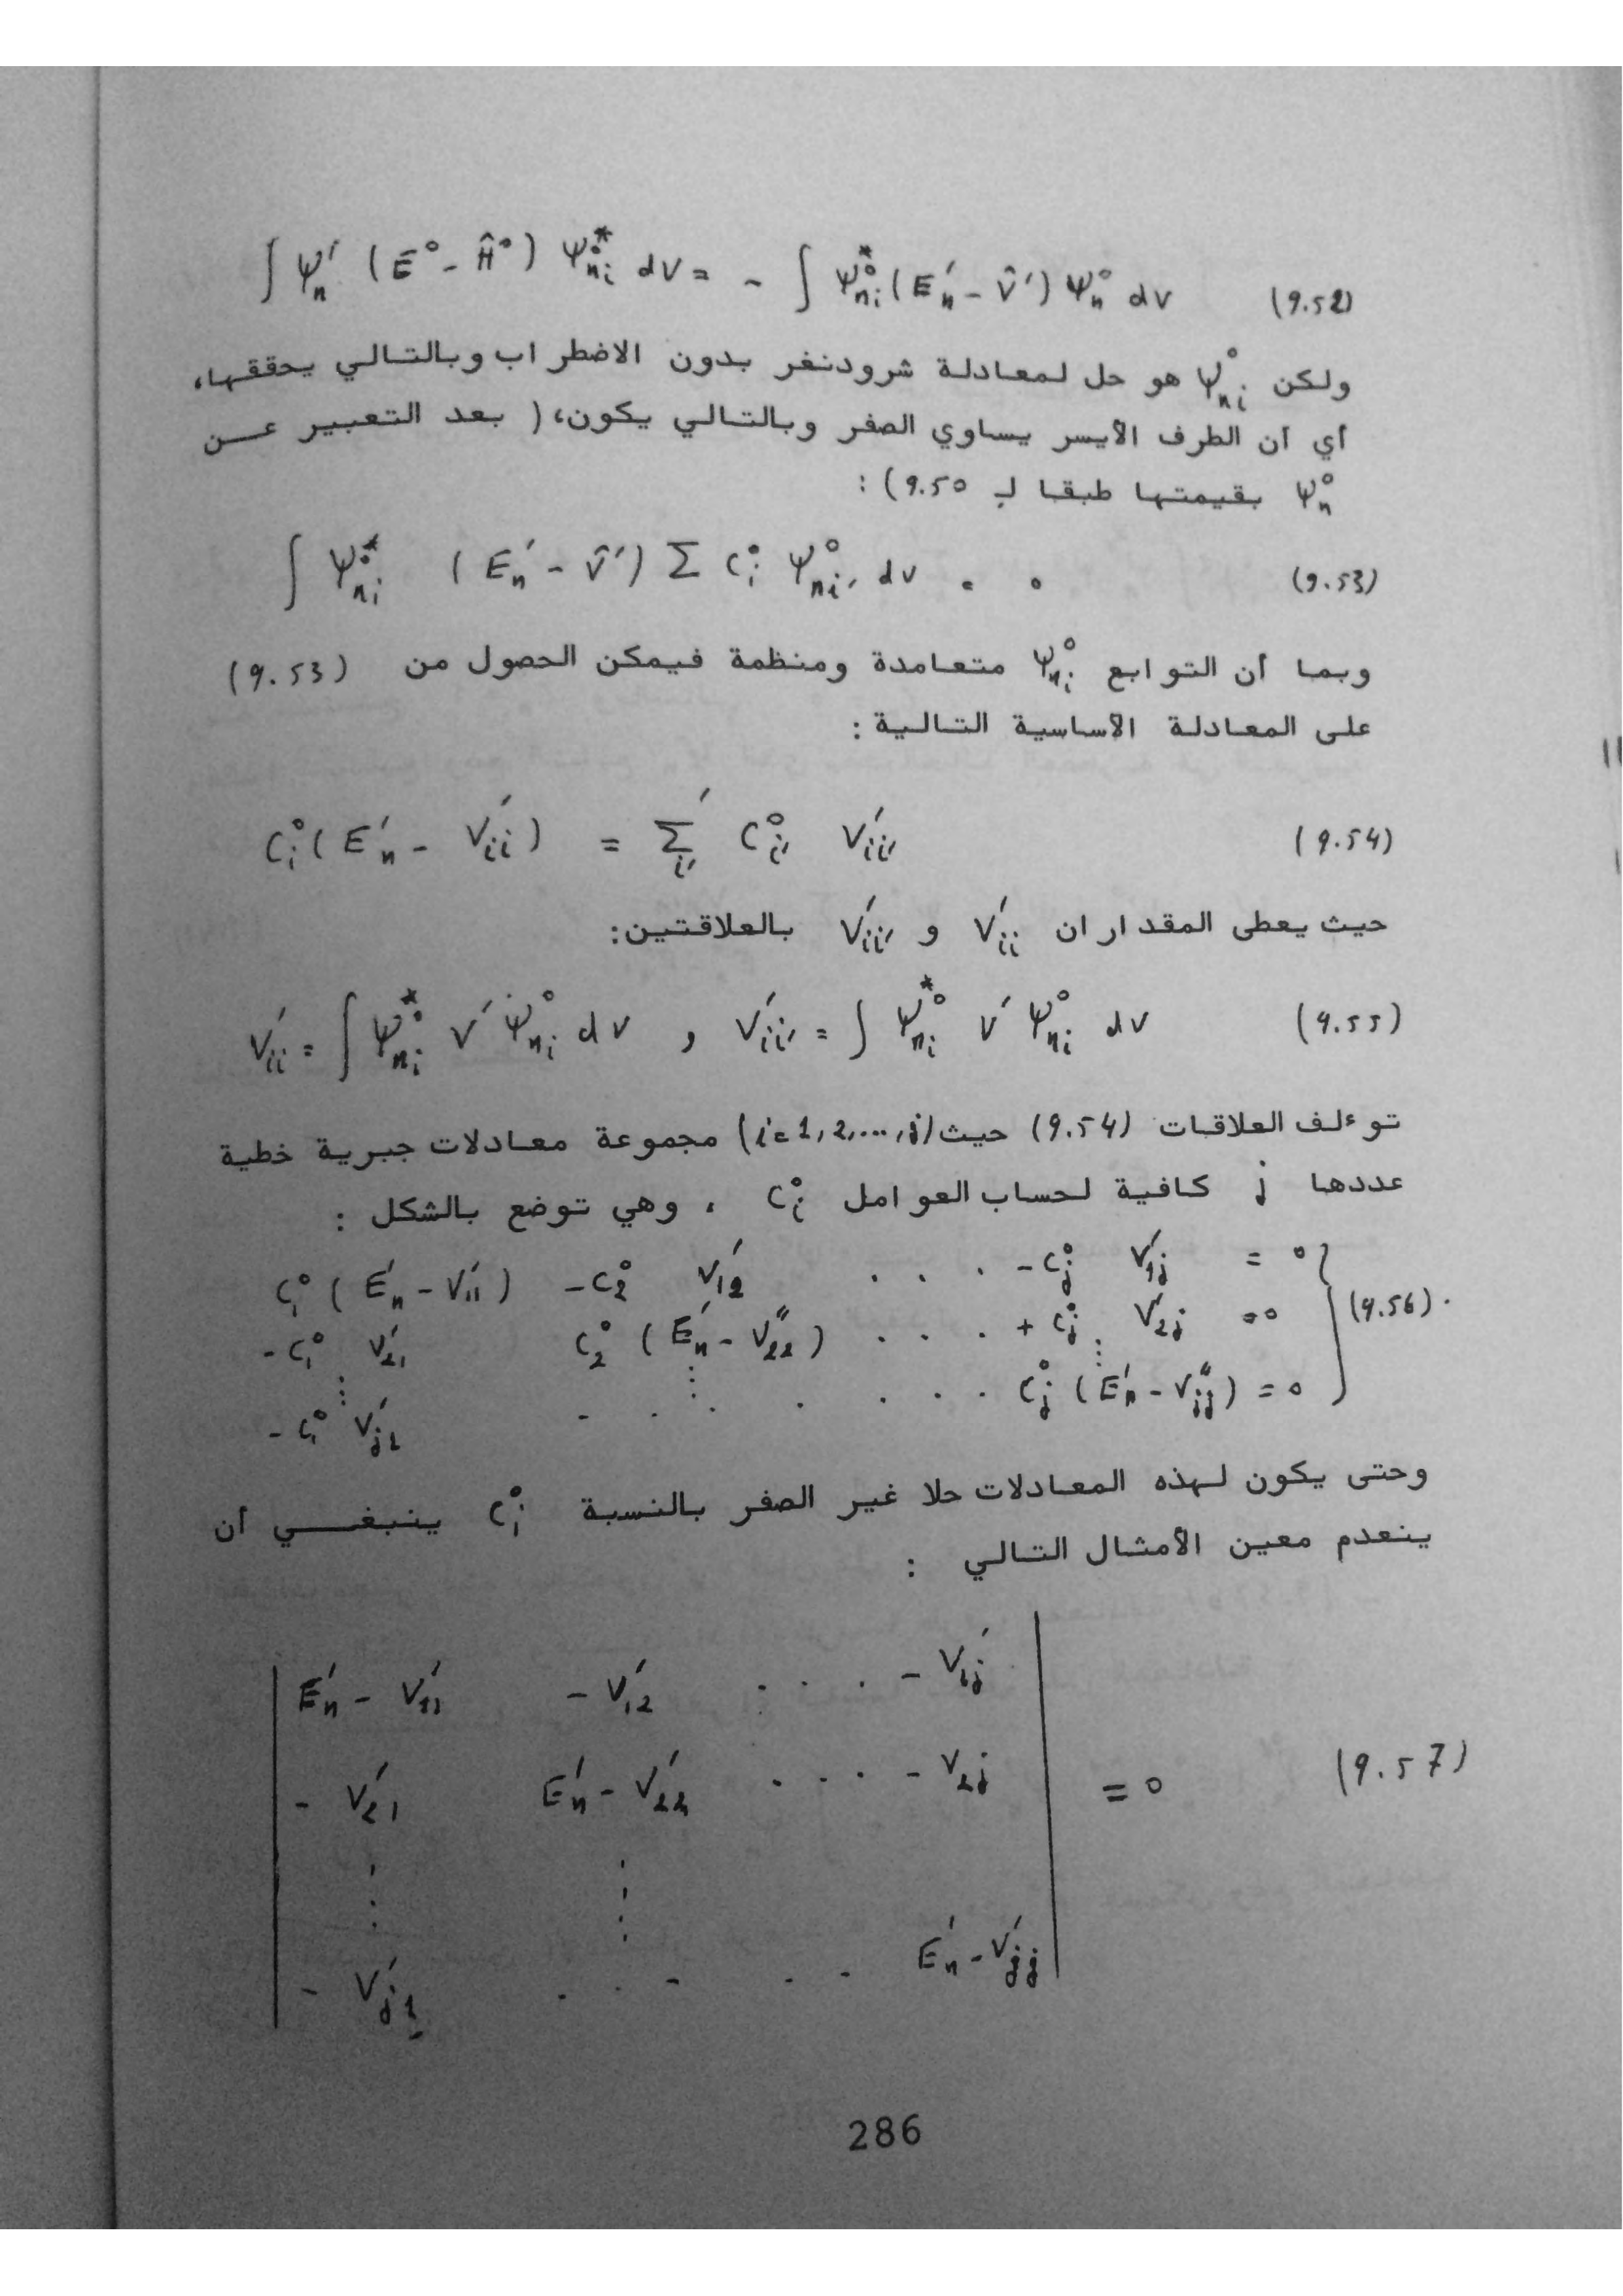 ∫ ψ′ₙ (E° - Ĥ°) ψ°*ₙᵢ dV = - ∫ ψ°*ₙᵢ (E′ₙ - V̂′) ψ°ₙ dV (9.52)
ولكن ψ°ₙᵢ هو حل لمعادلة شرودنغر بدون الاضطراب وبالتالي يحققها،
أي أن الطرف الأيسر يساوي الصفر وبالتالي يكون، ( بعد التعبير عن
ψ°ₙ بقيمتها طبقا لـ 9.50) :
∫ ψ°*ₙᵢ (E′ₙ - V̂′) Σ C°ᵢ ψ°ₙᵢ′ dv = 0 (9.53)
وبما أن التوابع ψ°ₙᵢ متعامدة ومنظمة فيمكن الحصول من (9.53)
على المعادلة الأساسية التالية :
C°ᵢ (E′ₙ - V′ᵢᵢ) = Σ′ᵢ′ C°ᵢ′ V′ᵢᵢ′ (9.54)
حيث يعطى المقداران V′ᵢᵢ و V′ᵢᵢ′ بالعلاقتين:
V′ᵢᵢ = ∫ ψ°*ₙᵢ V′ ψ°ₙᵢ dV , V′ᵢᵢ′ = ∫ ψ°*ₙᵢ V′ ψ°ₙᵢ dV (9.55)
توءلف العلاقات (9.54) حيث (i=1,2,...,j) مجموعة معادلات جبرية خطية
عددها j كافية لحساب العوامل C°ᵢ ، وهي توضع بالشكل :
C°₁ (E′ₙ - V′₁₁) -C°₂ V′₁₂ . . . -C°ⱼ V′₁ⱼ = 0
-C°₁ V′₂₁ C°₂ (E′ₙ - V″₂₂) . . . + C°ⱼ V′₂ⱼ =0 (9.56).
-C°₁ V′ⱼ₁ . . . . . . . C°ⱼ (E′ₙ - V″ⱼⱼ) = 0
وحتى يكون لهذه المعادلات حلا غير الصفر بالنسبة C°ᵢ ينبغي أن
ينعدم معين الأمثال التالي :
E′ₙ - V′₁₁ - V′₁₂ . . . - V′₁ⱼ
- V′₂₁ E′ₙ - V′₂₂ . . . - V₂ⱼ = 0 (9.57)
- V′ⱼ₁ . . . . . E′ₙ - V′ⱼⱼ
286